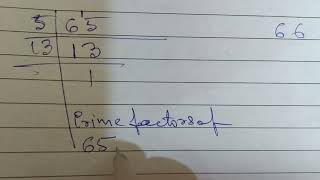 5 | 65
13 | 13
1
66
Prime factors of
65